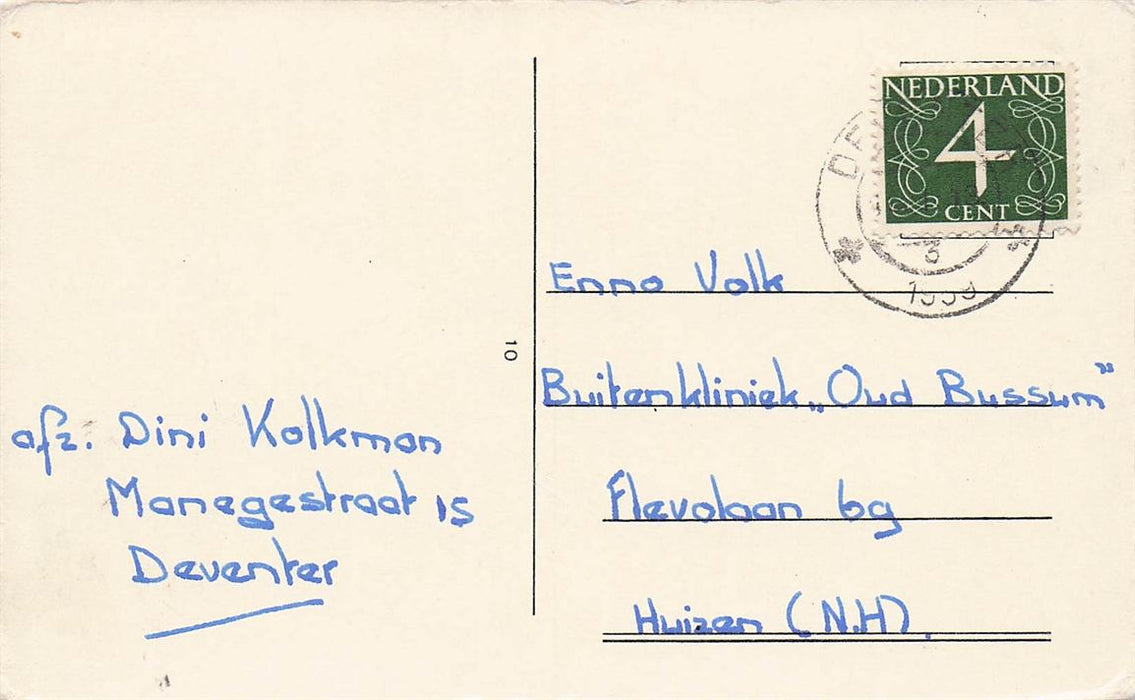 afz. Dini Kolkman
Manegestraat 15
Deventer
10
NEDERLAND
4
CENT
3
1959
Enno Volk
Buitenkliniek „Oud Bussum”
Flevolaan 69
Huizen (N.H).